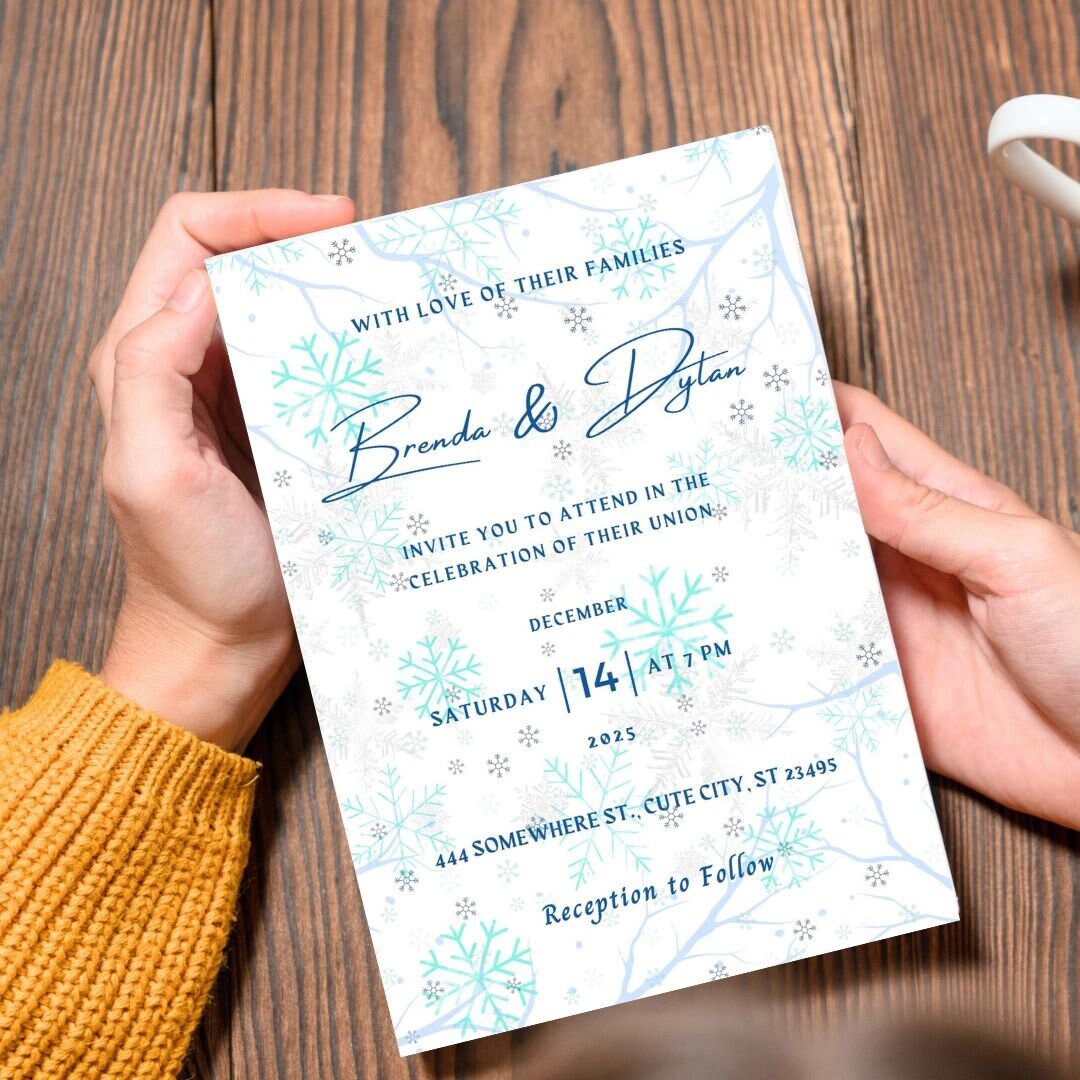 WITH LOVE OF THEIR FAMILIES
Brenda & Dylan
INVITE YOU TO ATTEND IN THE
CELEBRATION OF THEIR UNION
DECEMBER
SATURDAY | 14 | AT 7 PM
2025
444 SOMEWHERE ST., CUTE CITY, ST 23495
Reception to Follow